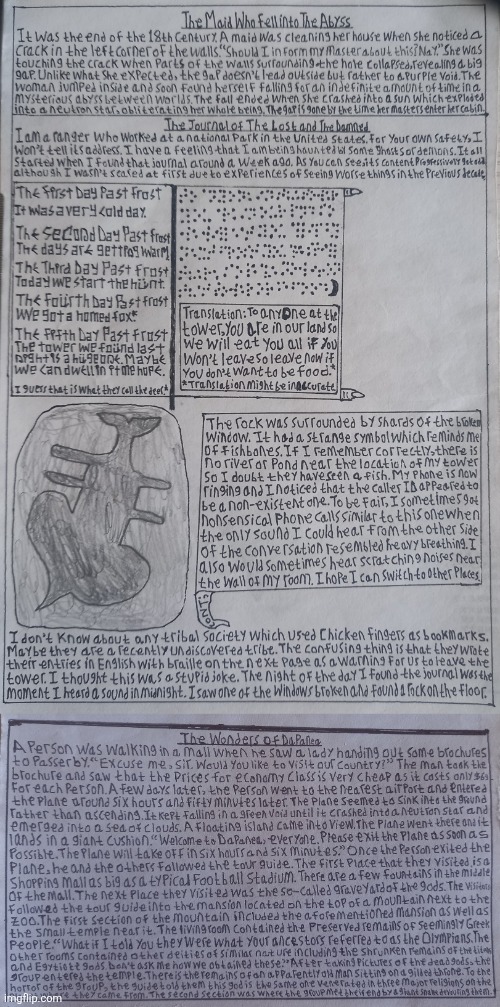 The Maid Who Fell into The Abyss
It was the end of the 18th Century. A maid was cleaning her house when she noticed a
crack in the left corner of the walls. "Should I inform my master about this? Nay." She was
touching the crack when parts of the walls surrounding the hole collapsed, revealing a big
gap. Unlike what she expected, the gap doesn't lead outside but rather to a purple void. The
woman jumped inside and soon found herself falling for an indefinite amount of time in a
mysterious abyss between worlds. The fall ended when she crashed into a sun which exploded
into a neutron star, obliterating her whole being. The gap is gone by the time her masters enter her cabin.
The Journal of The Lost and The Damned
I am a ranger who worked at a national park in the United States. For your own safety, I
won't tell its address. I have a feeling that I am being haunted by some ghosts or demons. It all
started when I found that journal around a week ago. As you can see its content progressively get odd
although I wasn't scared at first due to experiences of seeing worse things in the previous decade
The first Day Past frost
It was a very cold day.
The second Day Past frost
The days are getting warm
The Third Day Past frost
Today we start the hunt.
The Fourth Day Past frost
We got a horned fox*
The Fifth Day Past frost
The tower we found last
night is a huge one. Maybe
we can dwell in it one hope.
I guess that is what they call the deer*
Translation: To anyone at the
tower, you are in our land so
we will eat you all if you
won't leave so leave now if
you don't want to be food.*
*Translation might be inaccurate
The rock was surrounded by shards of the broken
window. It had a strange symbol which reminds me
of fishbones. If I remember correctly, there is
no river or pond near the location of my tower
so I doubt they have seen a fish. My phone is now
ringing and I noticed that the caller ID appeared to
be a non-existent one. To be fair, I sometimes got
nonsensical phone calls similar to this one when
the only sound I could hear from the other side
of the conversation resembled heavy breathing. I
also would sometimes hear scratching noises near
the wall of my room. I hope I can switch to other places
I don't know about any tribal society which used chicken fingers as bookmarks.
Maybe they are a recently undiscovered tribe. The confusing thing is that they wrote
their entries in English with braille on the next page as a warning for us to leave the
tower. I thought this was a stupid joke. The night of the day I found the journal was the
moment I heard a sound in midnight. I saw one of the windows broken and found a rock on the floor.
The Wonders of DaPanea
A Person was walking in a mall when he saw a lady handing out some brochures
to passerby. "Excuse me, sir. Would you like to visit our country?" The man took the
brochure and saw that the prices for economy class is very cheap as it costs only
for each person. A few days later, the person went to the nearest airport and entered
the plane around six hours and fifty minutes later. The plane seemed to sink into the ground
rather than ascending. It kept falling in a green void until it crashed into a neutron star and
emerged into a sea of clouds. A floating island came into view. The plane went there and it
lands in a giant cushion. "Welcome to DaPanea, everyone. Please exit the plane as soon as
possible. The plane will take off in six hours and six minutes." Once the person exited the
plane, he and the others followed the tour guide. The first place that they visited is a
shopping mall as big as a typical football stadium. There are a few fountains in the middle
of the mall. The next place they visited was the so-called graveyard of the gods. The visitors
followed the tour guide into the mansion located on the top of a mountain next to the
zoo. The first section of the mountain included the aforementioned mansion as well as
the small temple near it. The living room contained the preserved remains of seemingly Greek
people. "What if I told you they were what your ancestors referred to as the Olympians. The
other rooms contained other deities of similar nature including the shrunken remains of the
and Egyptian gods. Don't ask me how we obtained these." After taking pictures of the dead gods, the
group entered the temple. There is the remains of an apparently old man sitting on a gilded throne. To the
horror of the group, the guide told them this god is the same one venerated in three major religions on the
they came from. The second section was where the group met their end by a giant
imgflip.com